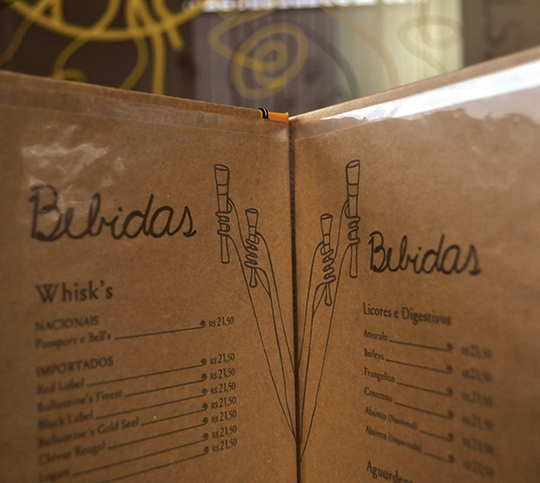 Bebidas
Whisk's
NACIONAIS
Passport e Bell's R$ 21,50
IMPORTADOS
Red Label R$ 21,50
Ballantine's Finest R$ 21,50
Black Label R$ 21,50
Ballantine's Gold Seal R$ 21,50
Chivas Reugel R$ 21,50
Logan R$ 21,50
Bebidas
Licores e Digestivos
Amarula R$ 21,50
Baileys R$ 21,50
Frangelico R$ 21,50
Cointreau R$ 21,50
Absinto (Nacional) R$ 21,50
Absinto (Importado) R$ 21,50